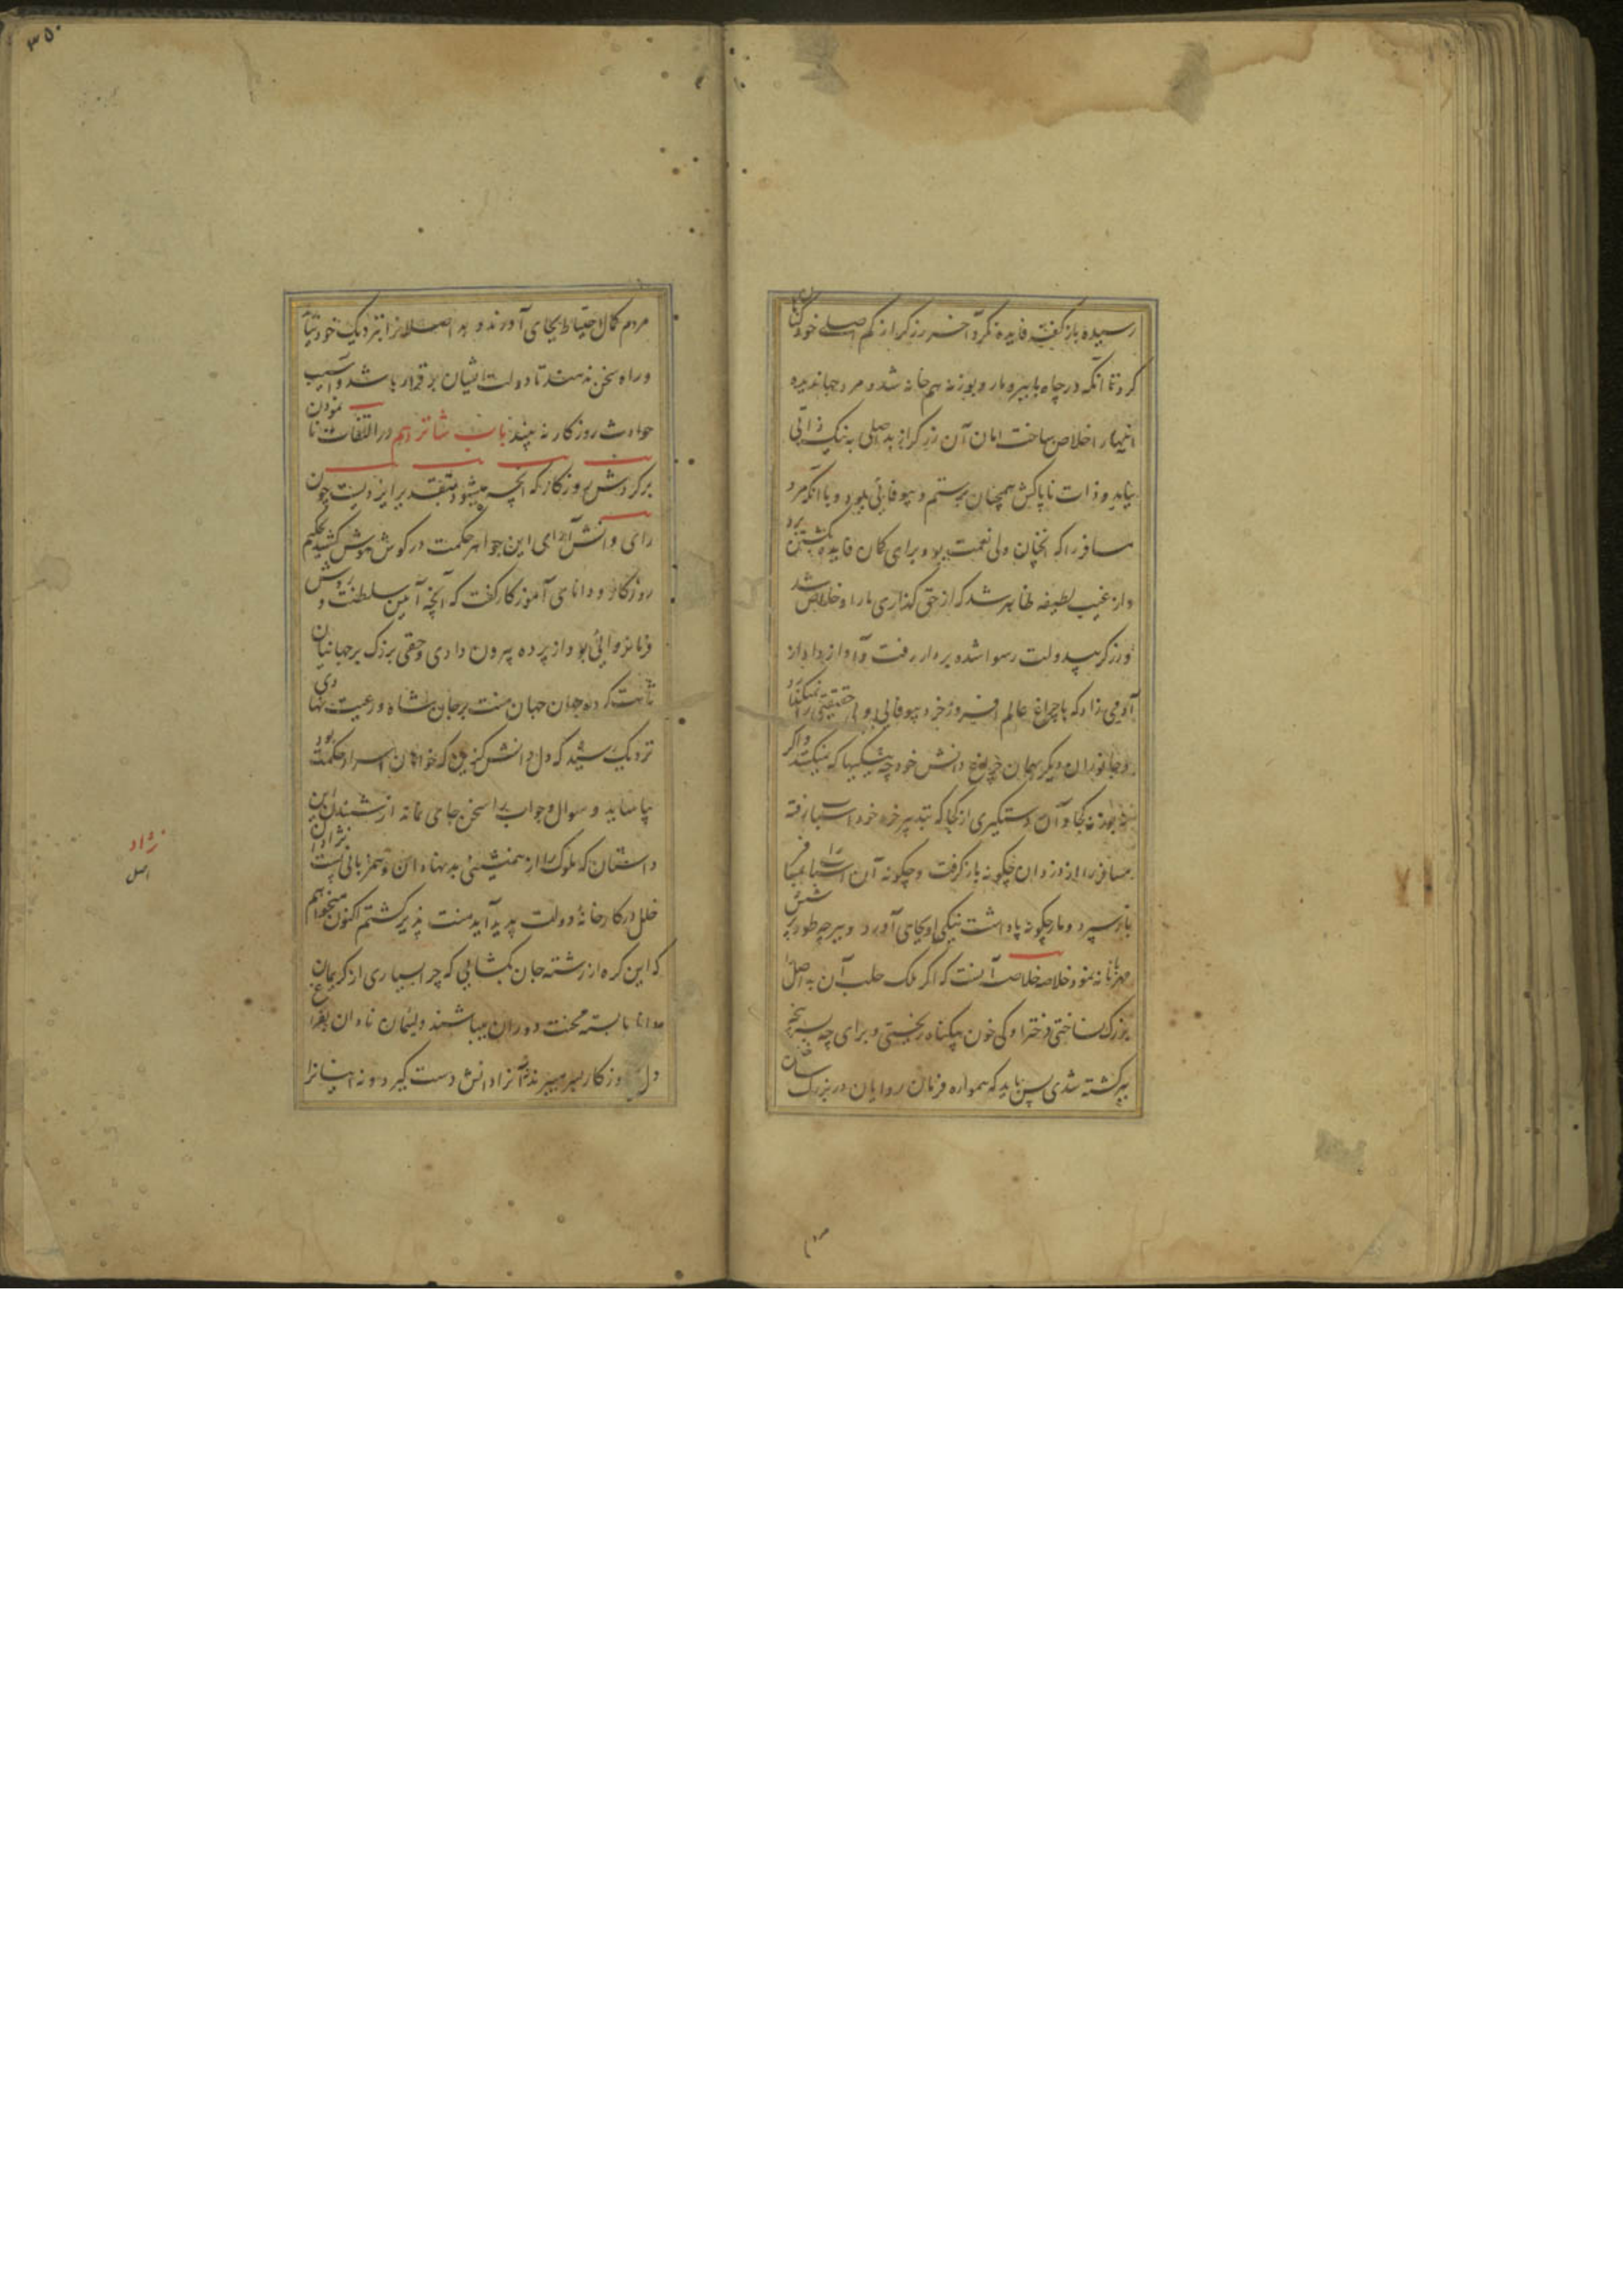 رسیده باز گفته فایده نکرد آخر زرگر از کم اصلی خود گناه
کرد تا آنکه در چاه با ببر و مار و بوزنه هم خانه شد و مرد جهاندیده
اینها را خلاص ساخت اما آن زرگر از بد اصلی به نیک ذاتی
نیامد و ذات ناپاکش همچنان بر ستم و بیوفائی بود و با آنکه مرد
مسافر را که انچنان ولی نعمت بود برای کان فایده بکشتن
و از غیب لطیفه ظاهر شد که از حق گذاری مار او خلاص شد
و زرگر بیدولت رسوا شده بر دار رفت و آواز داد از
آدمی زاد که با چراغ عالم افروز خرد بیوفائی و بی حقیقتی را
و جانوران دیگر بیچراغ دانش خود چه نیکیها که میکنند و اگر
بوزنه کجا و آن دستگیری از کجا که بتدبیر خرد خود اسباب رفته
مسافر را از دزدان چگونه باز گرفت و چگونه آن اسباب را
باز سپرد و مار چگونه پاداشت نیکی او بجای آورد و ببر چه طور
مهربانانه نمود خلاصه خلاصه آنست که اگر ملک حلب آن بد اصل را
بزرگ نساختی دختر او کی خون بیگناه ریختی و برای چه به سر پنجه
ببر کشته شدی پس باید که همواره فرمان روایان در بزرگ ساختن
۳۵۰
مردم کمال احتیاط بجای آورند و بد اصلانرا نزدیک خود
و راه سخن ندهند تا دولت ایشان بر قرار باشد و آسیب
حوادث روزگار نه بیند باب شانزدهم در التفات نا نمودن
بر گردش روزگار که آنچه میشود بتقدیر ایزدیست چون
رای دانش آرای این جواهر حکمت در گوش هوش کشید حکیم
روزگار و دانای آموزگار گفت که آنچه آئین سلطنت و روش
فرمانروائی بود از پرده بیرون دادی و حقی بزرگ بر جهانیان
ثابت کرده جان جهان منت بر جان شاه و رعیت نهادی
نزدیک رسید که دل دانش گزین که خواهان اسرار حکمت بود
بیاساید و سوال و جواب را سخن جامی نماند از شنیدن این
داستان که ملوک را از همنشینی بد نهادان و همزبانی پست نژادان
خلل در کارخانهٔ دولت پدید آید منت پذیر گشتم اکنون میخواهم
که این گره از رشته جان بگشایی که چرا بسیاری از کریمان
دانا بابسته محنت دوران میباشند و لئیمان نادان بفراغ
دل روزگار بسر میبرند نه آنرا دانش دست گیرد و نه اینانرا
نژاد
اصل